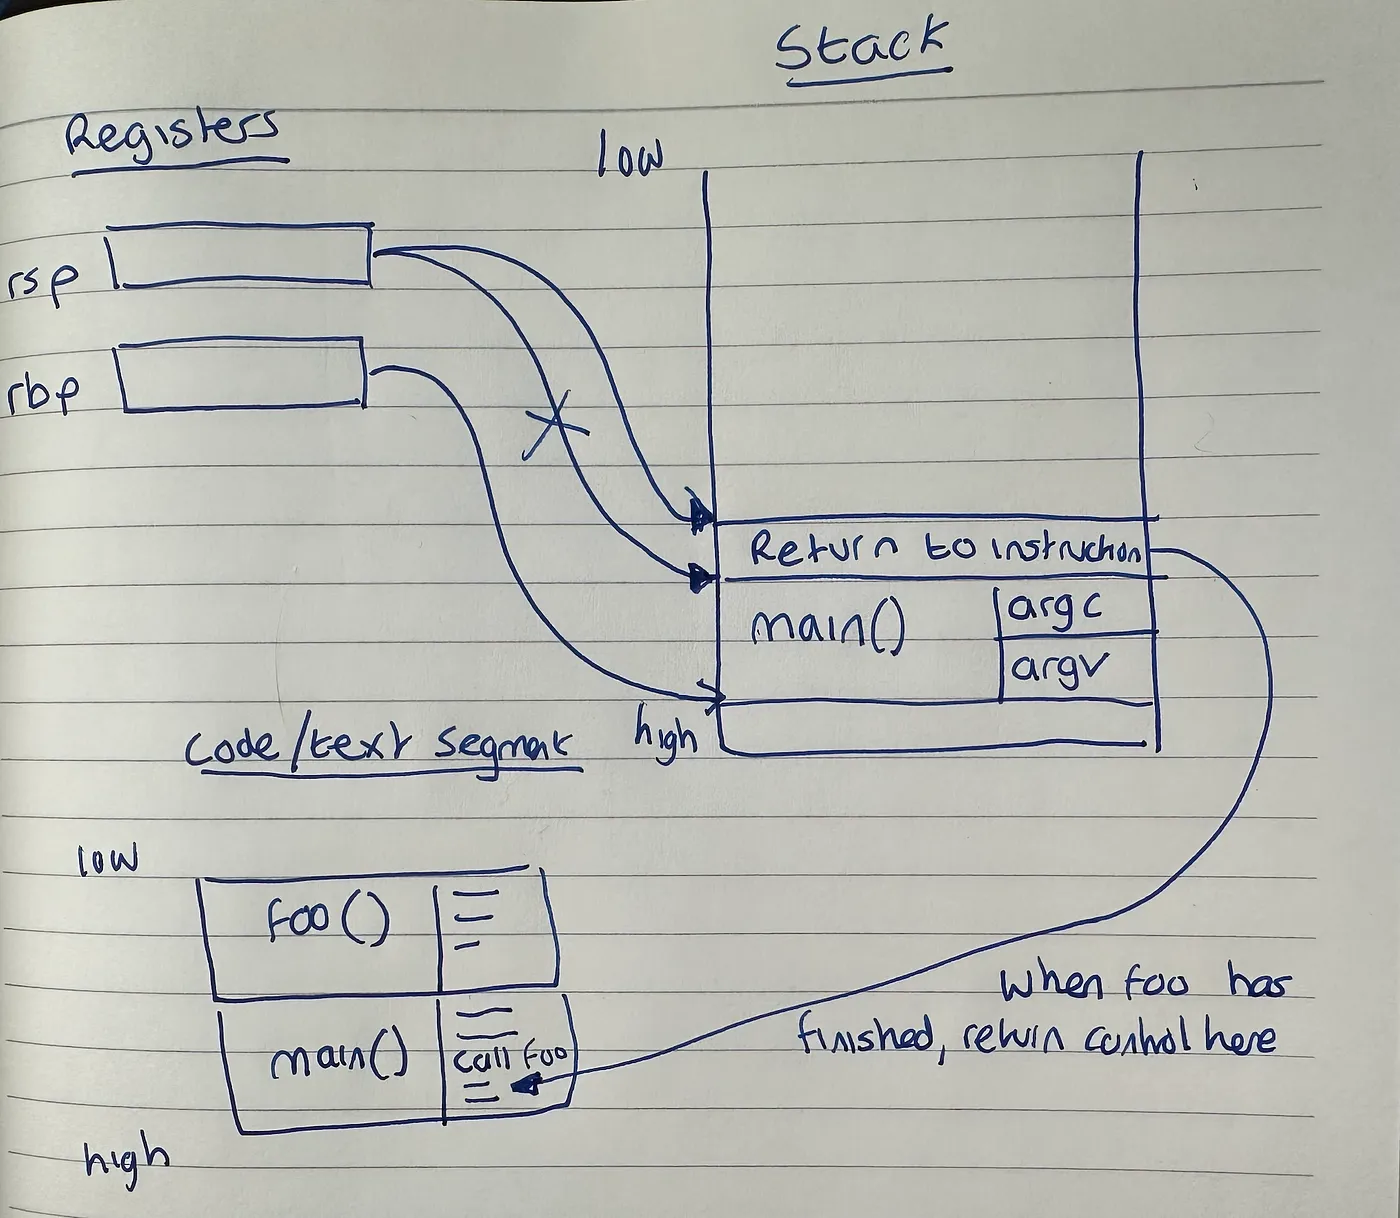 Stack
Registers
low
rsp
rbp
Return to instruction
main()
argc
argv
high
Code/text segment
low
foo()
main()
call foo
high
when foo has
finished, return control here